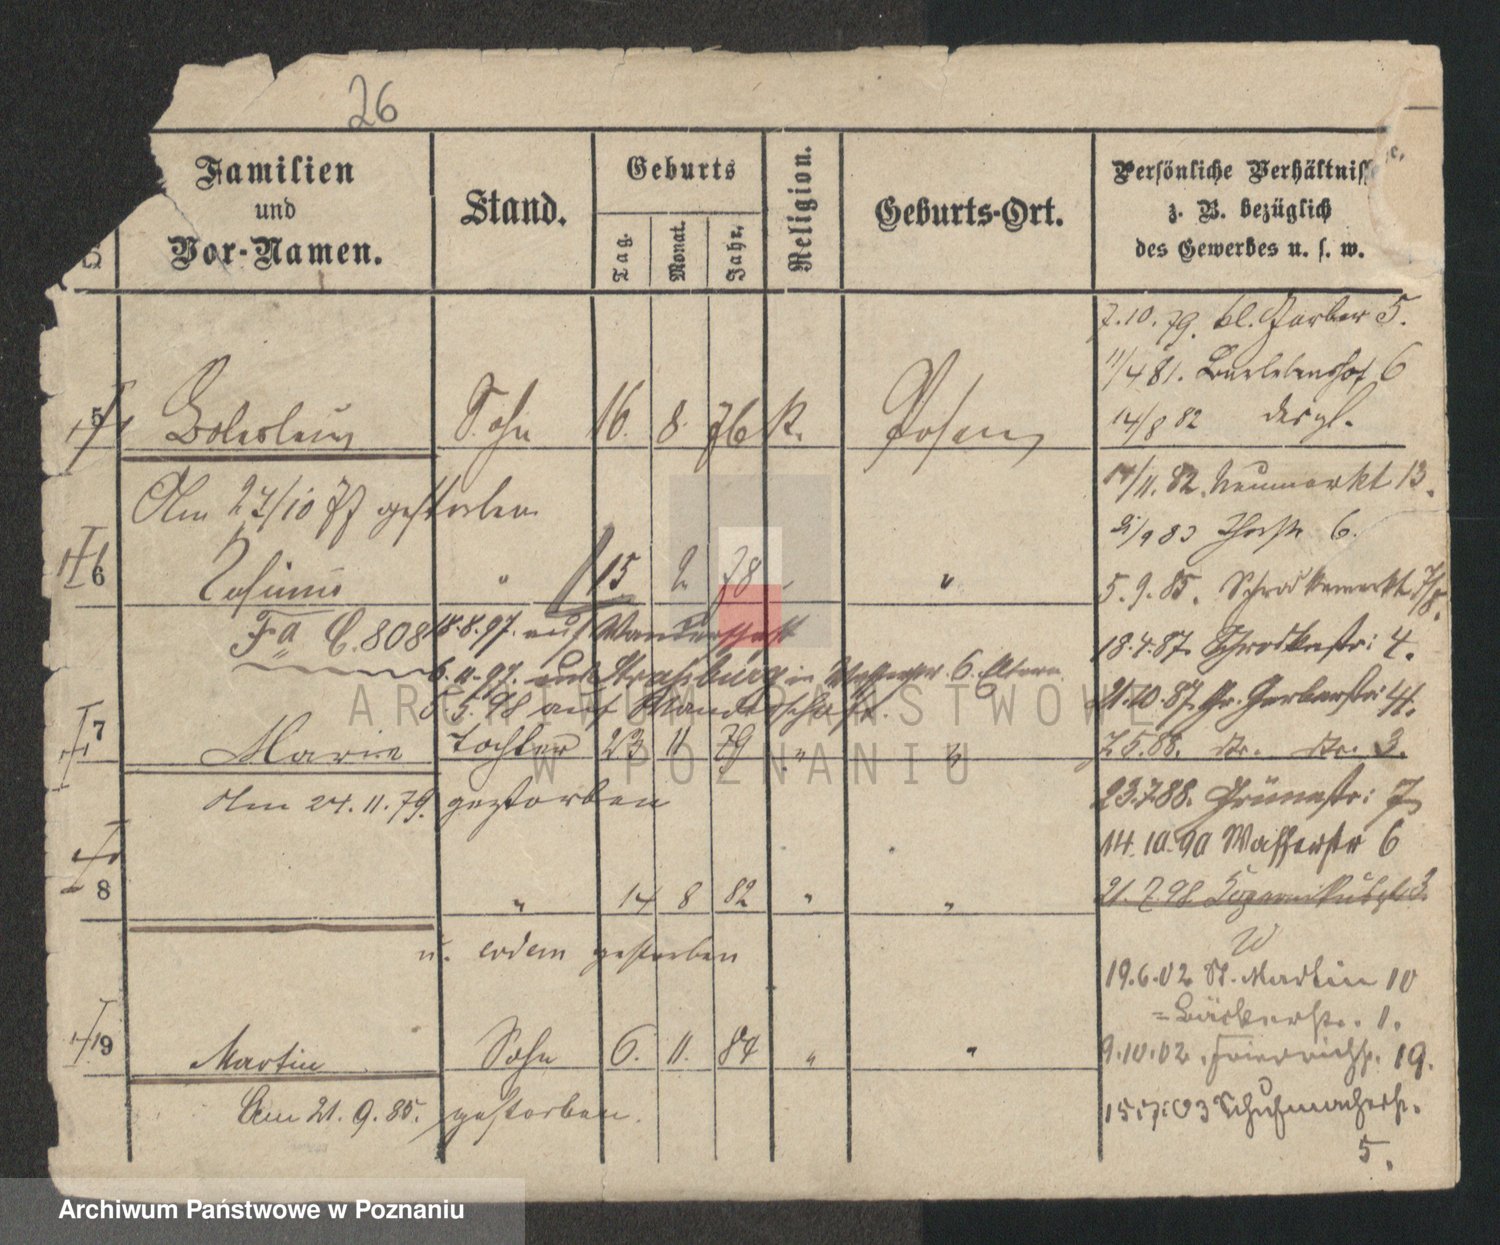 26
Familien
und
Vor-Namen.
Stand.
Geburts
Tag.
Monat.
Jahr.
Religion.
Geburts-Ort.
Persönliche Verhältnisse,
z. B. bezüglich
des Gewerbes u. s. w.
5 Boleslaus Sohn 16. 8. 76 k. Posen
Am 27/10 77 gestorben
6 " 15 2. 78 " "
Fa C. 808 18.8.97. auf Wanderschaft
5.11.97. aus Straßburg in 6. Eltern
5.5.98 auf Wanderschaft.
7 Marie Tochter 23 11 79 " "
Am 24.11.79. gestorben
8 " 14 8 82 " "
u. erdem gestorben
9 Martin Sohn 6. 11. 84 " "
Am 21.9.85. gestorben.
7.10.79. kl. Gerber 5.
11/4 81. 6
14/8 82 desgl.
14/11. 82. Neumarkt 13.
9 83 6.
5.9.85. Schrodkamarkt
18.4.87. Schrodkastr: 4.
21.10.87. Gr. Gerberstr: 41.
7.5.88. do. do. 3.
23.7.88. Grünestr: 7
14.10.90 Wasserstr 6
21.7.98
W
19.6.02 St. Martin 10
= Bäckerstr. 1.
9.10.02. Friedrichstr. 19.
15.7.03 Schuhmacherstr.
5.
ARCHIWUM PAŃSTWOWE
W POZNANIU
Archiwum Państwowe w Poznaniu